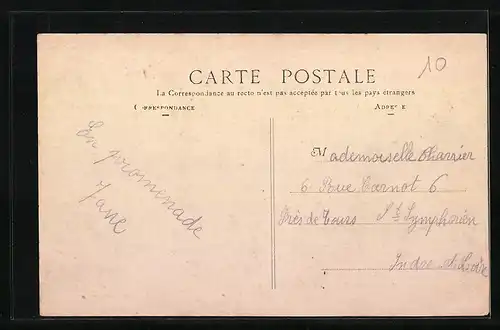 10
CARTE POSTALE
La Correspondance au recto n'est pas acceptée par tous les pays étrangers
CORRESPONDANCE
ADRESSE
En promenade
Mademoiselle Charrier
6 Rue Carnot 6
Près de Tours St Symphorien
Indre et Loire